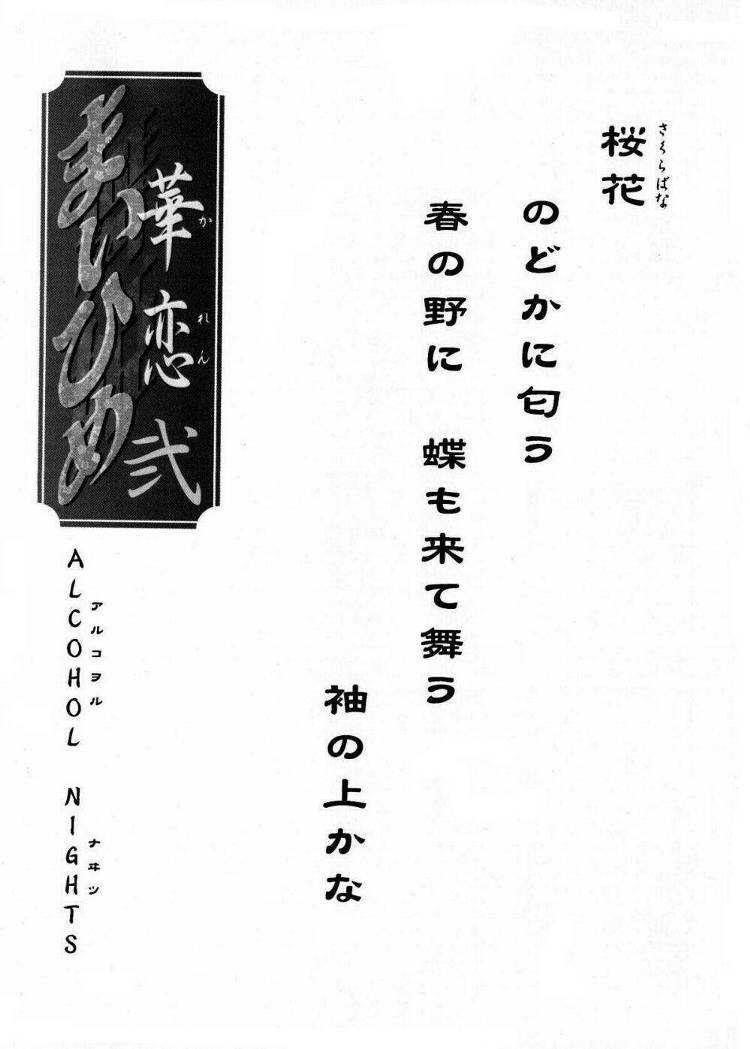 桜花
さくらばな
のどかに匂う
春の野に　蝶も来て舞う
袖の上かな
華恋 弐
かれん
まいひめ
ALCOHOL NIGHTS
アルコヲル ナヰツ